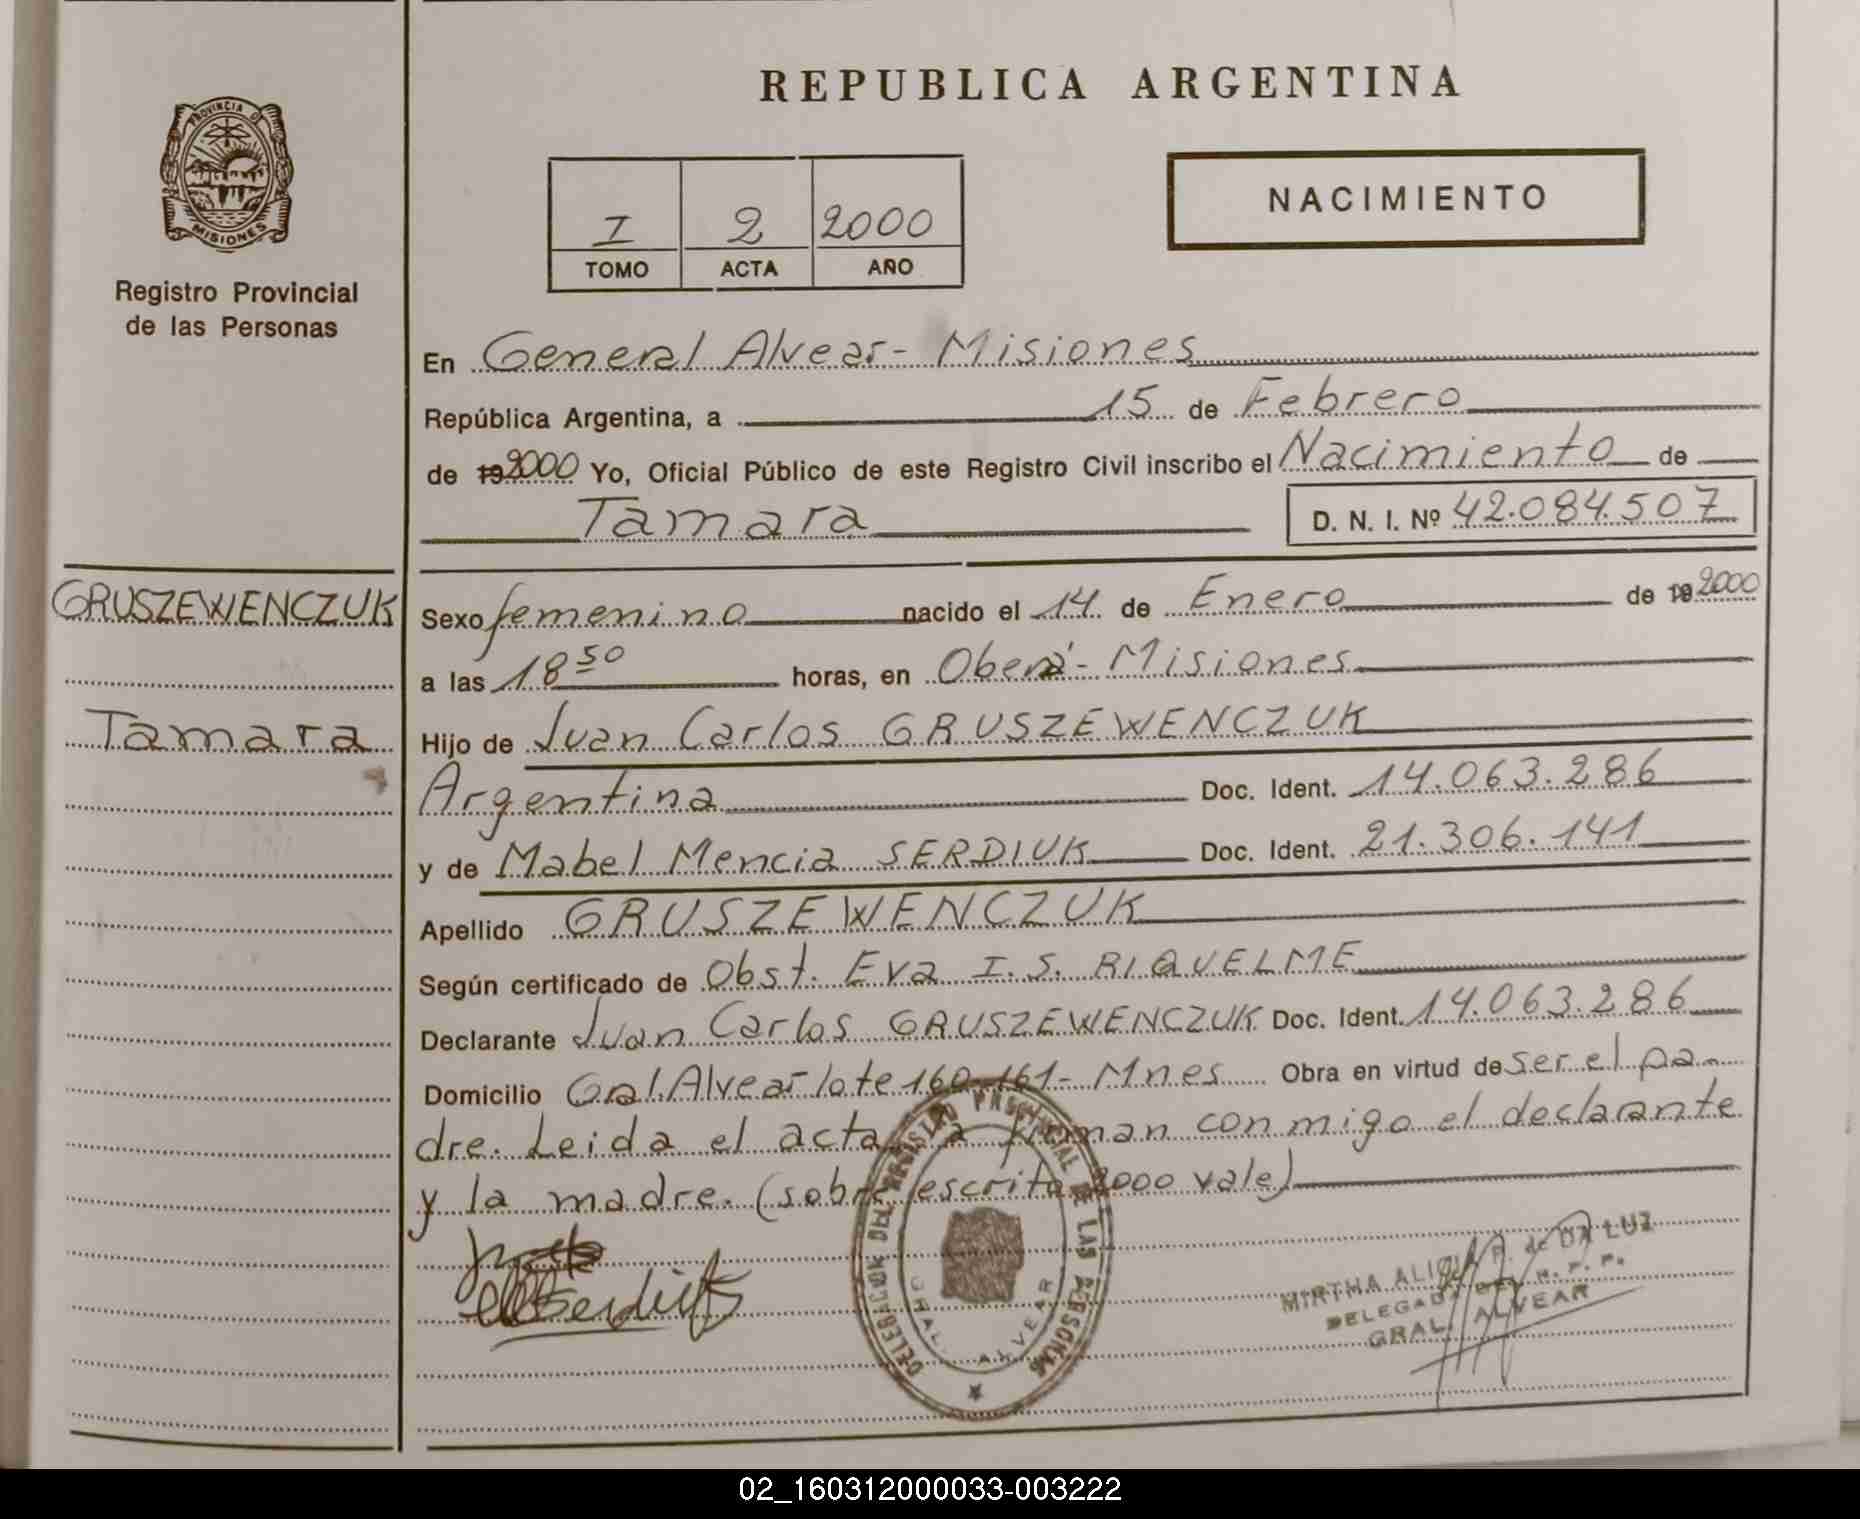 REPUBLICA ARGENTINA
PROVINCIA DE MISIONES
Registro Provincial
de las Personas
I 2 2000
TOMO ACTA AÑO
NACIMIENTO
En General Alvear - Misiones
República Argentina, a 15 de Febrero
de 192000 Yo, Oficial Público de este Registro Civil inscribo el Nacimiento de
Tamara D. N. I. Nº 42.084.507
GRUSZEWENCZUK
Tamara
Sexo femenino nacido el 14 de Enero de 192000
a las 18 50 horas, en Oberá - Misiones
Hijo de Juan Carlos GRUSZEWENCZUK
Argentina Doc. Ident. 14.063.286
y de Mabel Mencia SERDIUK Doc. Ident. 21.306.141
Apellido GRUSZEWENCZUK
Según certificado de Obst. Eva I. S. RIQUELME
Declarante Juan Carlos GRUSZEWENCZUK Doc. Ident. 14.063.286
Domicilio Gral. Alvear lote 160-161- Mnes Obra en virtud de ser el pa-
dre. Leida el acta la firman conmigo el declarante
y la madre. (sobre escrito 2000 vale)
Serdiuk
DELEGACION DEL REGISTRO PROVINCIAL DE LAS PERSONAS
GRAL. ALVEAR
MIRTHA ALICIA P. de DA LUZ
DELEGADA DEL R. P. P.
GRAL. ALVEAR
02_160312000033-003222